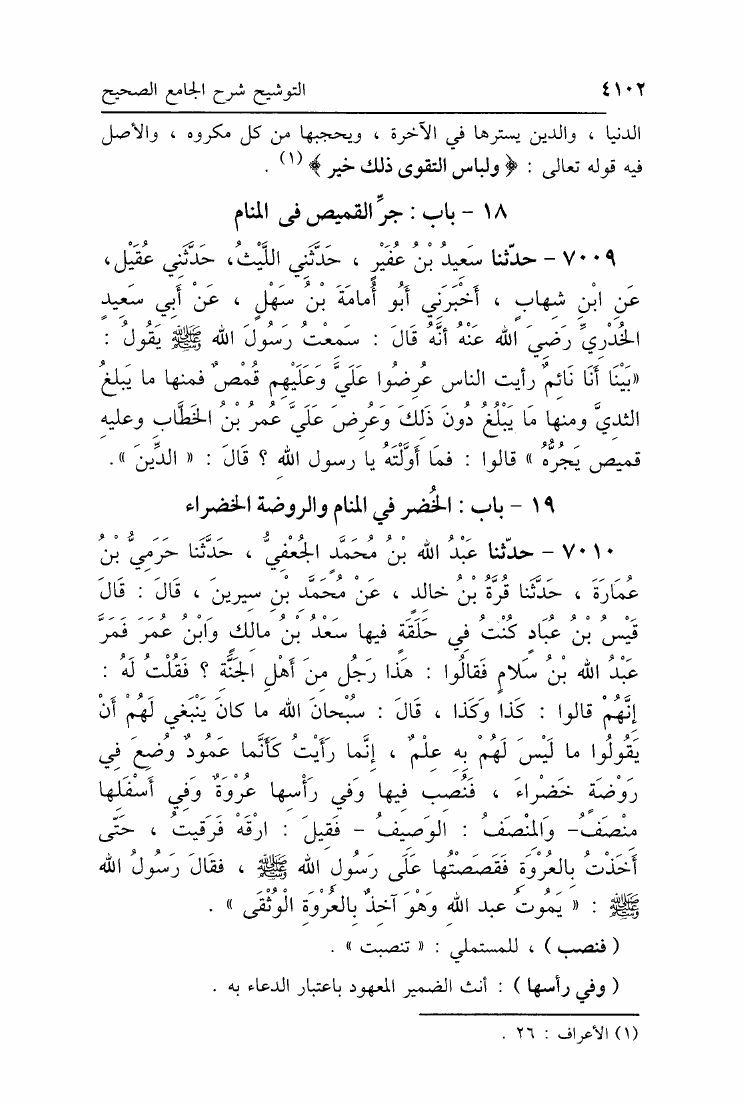 ٤١٠٢ التوشيح شرح الجامع الصحيح
الدنيا ، والدين يسترها في الآخرة ، ويحجبها من كل مكروه ، والأصل
فيه قوله تعالى : ﴿ ولباس التقوى ذلك خير ﴾ (١) .
١٨ - باب : جرِّ القميص فى المنام
٧٠٠٩ - حدّثنا سَعِيدُ بْنُ عُفَيْرٍ ، حَدَّثَنِي اللَّيْثُ، حَدَّثَنِي عُقَيْل،
عَنِ ابْنِ شهابٍ ، أَخْبَرَنِي أَبُو أُمامَةَ بْنُ سَهْلٍ ، عَنْ أَبِي سَعِيدٍ
الخُدْرِيِّ رَضِيَ الله عَنْهُ أَنَّهُ قَالَ : سَمعْتُ رَسُولَ الله ﷺ يَقُولُ :
«بَيْنَا أَنَا نَائِمٌ رأيت الناس عُرِضُوا عَلَيَّ وَعَلَيْهِم قُمُصٌ فمنها ما يَبلغُ
الثديَّ ومنها مَا يَبْلُغُ دُونَ ذَلكَ وَعُرِضَ عَلَيَّ عمرُ بْنُ الخَطَّابِ وعليه
قميص يَجُرُّهُ » قالوا : فمَا أَوَّلْتَهُ يا رسول الله ؟ قَالَ : « الدِّينَ ».
١٩ - باب : الخُضر في المنام والروضة الخضراء
٧٠١٠ - حدّثنا عَبْدُ الله بْنُ مُحَمَّد الجُعْفيُّ ، حَدَّثَنا حَرَميُّ بْنُ
عُمَارَةَ ، حَدَّثَنا قُرَّةُ بْنُ خالد ، عَنْ مُحَمَّد بْنِ سِيرينَ ، قَالَ : قَالَ
قَيْسُ بْنُ عُبَادٍ كُنْتُ فِي حَلَقَةٍ فيها سَعْدُ بْنُ مالكٍ وَابْنُ عُمَرَ فَمَرَّ
عَبْدُ الله بْنُ سَلامٍ فَقالُوا : هَذا رَجُل منَ أَهْلِ الجَنَّةِ ؟ فَقُلْتُ لَهُ :
إِنَّهُمْ قالوا : كَذا وكَذا ، قَالَ : سُبْحانَ الله ما كانَ يَنْبَغي لَهُمْ أَنْ
يَقُولُوا ما لَيْسَ لَهُمْ بِه عِلْمٌ ، إِنَّما رَأَيْتُ كَأَنَّما عَمُودٌ وُضِعَ فِي
رَوْضَةٍ خَضْراءَ ، فَنُصِبَ فيها وَفي رَأْسها عُرْوَةٌ وَفِي أَسْفَلِها
مِنْصَفٌ- وَالمِنْصَفُ : الوَصِيفُ - فَقِيلَ : ارْقَهْ فَرَقِيتُ ، حَتَّى
أَخَذْتُ بِالعُرْوَةِ فَقَصَصْتُها عَلَى رَسُولِ الله ﷺ ، فقالَ رَسُولُ الله
ﷺ : « يَمُوتُ عبد الله وَهْوَ آخِذٌ بِالعُرْوَةِ الْوُثْقَى » .
( فنصب ) ، للمستملي : « تنصبت » .
( وفي رأسها ) : أنث الضمير المعهود باعتبار الدعاء به .
(١) الأعراف : ٢٦ .